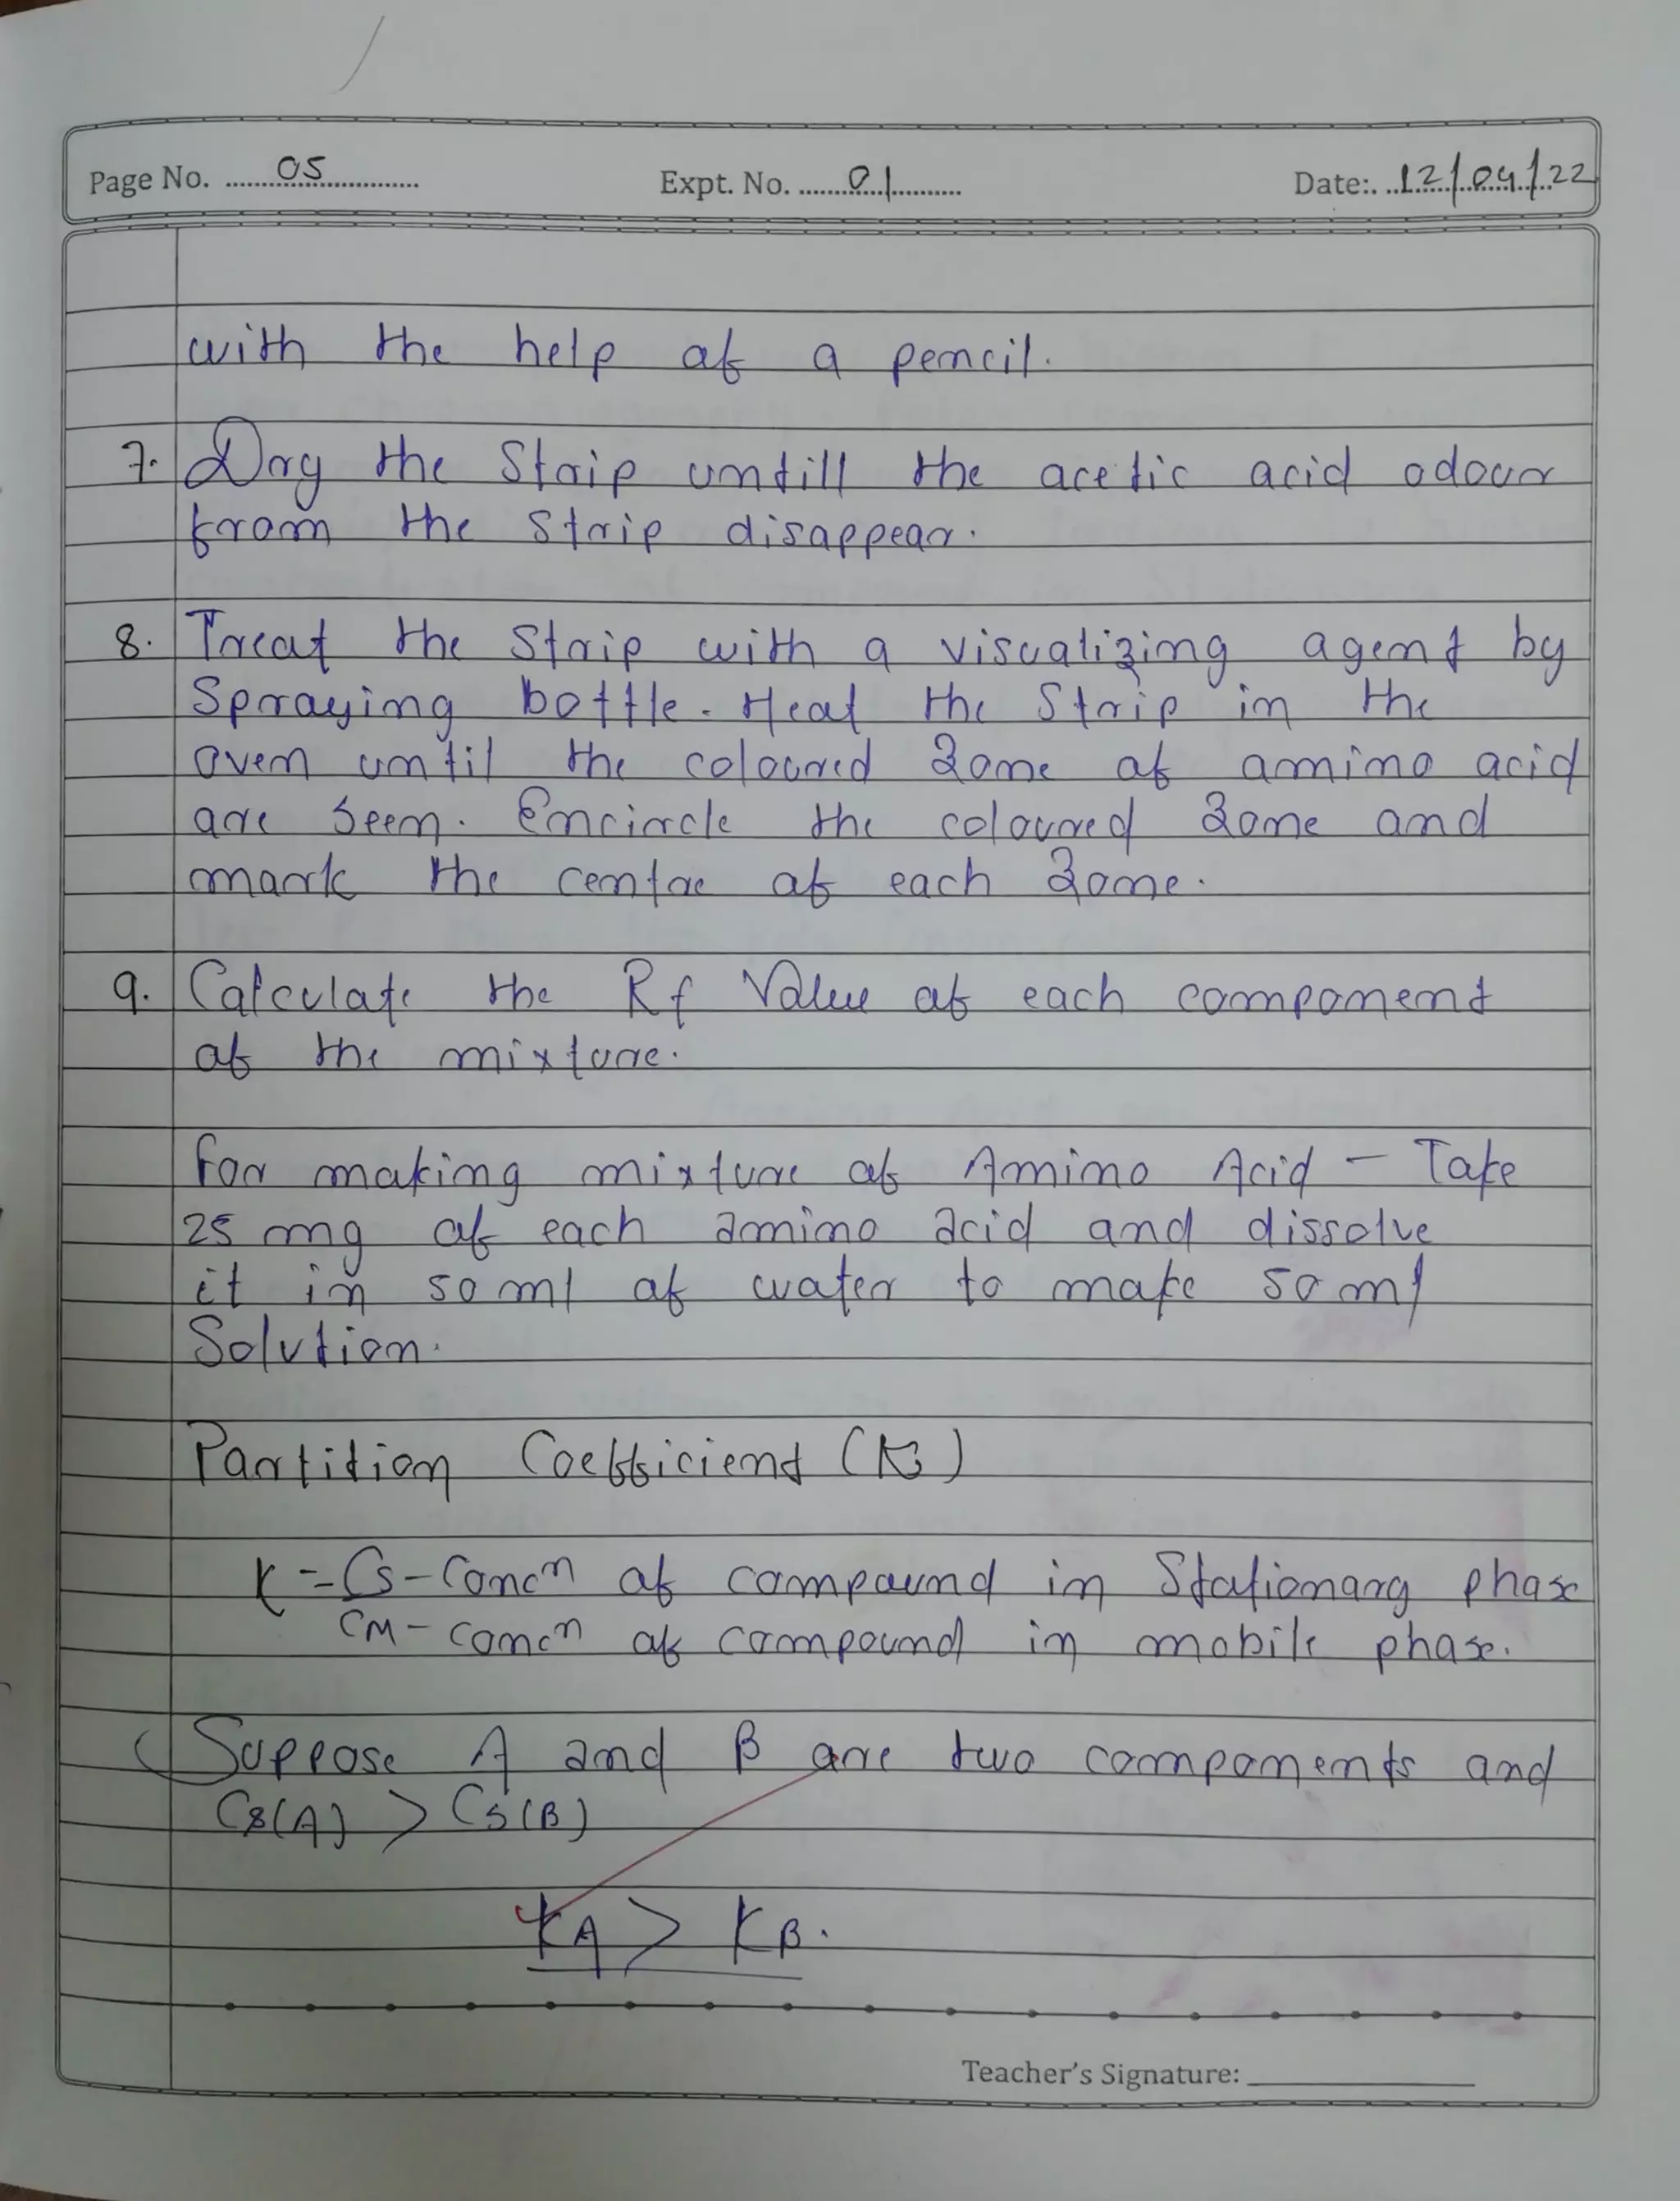 Page No. 05 Expt. No. 01 Date:. 12/04/22
with the help of a pencil.
7. Dry the Strip untill the acetic acid odour
from the strip disappear.
8. Treat the Strip with a visualizing agent by
Spraying bottle. Heat the Strip in the
oven until the coloured Zone of amino acid
are seen. Encircle the coloured Zone and
mark the centre of each Zone.
9. Calculate the Rf Value of each component
of the mixture.
For making mixture of Amino Acid - Take
25 mg of each amino acid and dissolve
it in 50 ml of water to make 50 ml
Solution.
Partition Coefficient (K)
K = Cs - Concn of compound in Stationary phase
CM - concn of compound in mobile phase.
Suppose A and B are two components and
Cs(A) > Cs(B)
KA > KB.
Teacher's Signature: